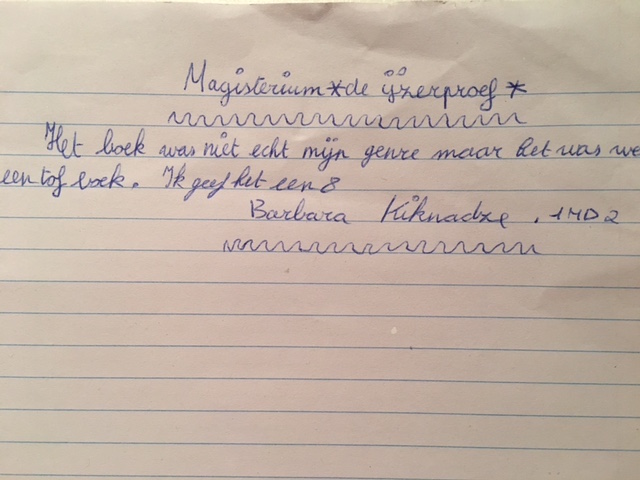 Magisterium *de ijzerproef *
Het boek was niet echt mijn genre maar het was we
een tof boek. Ik geef het een 8
Barbara Kiknadze . 1HD2